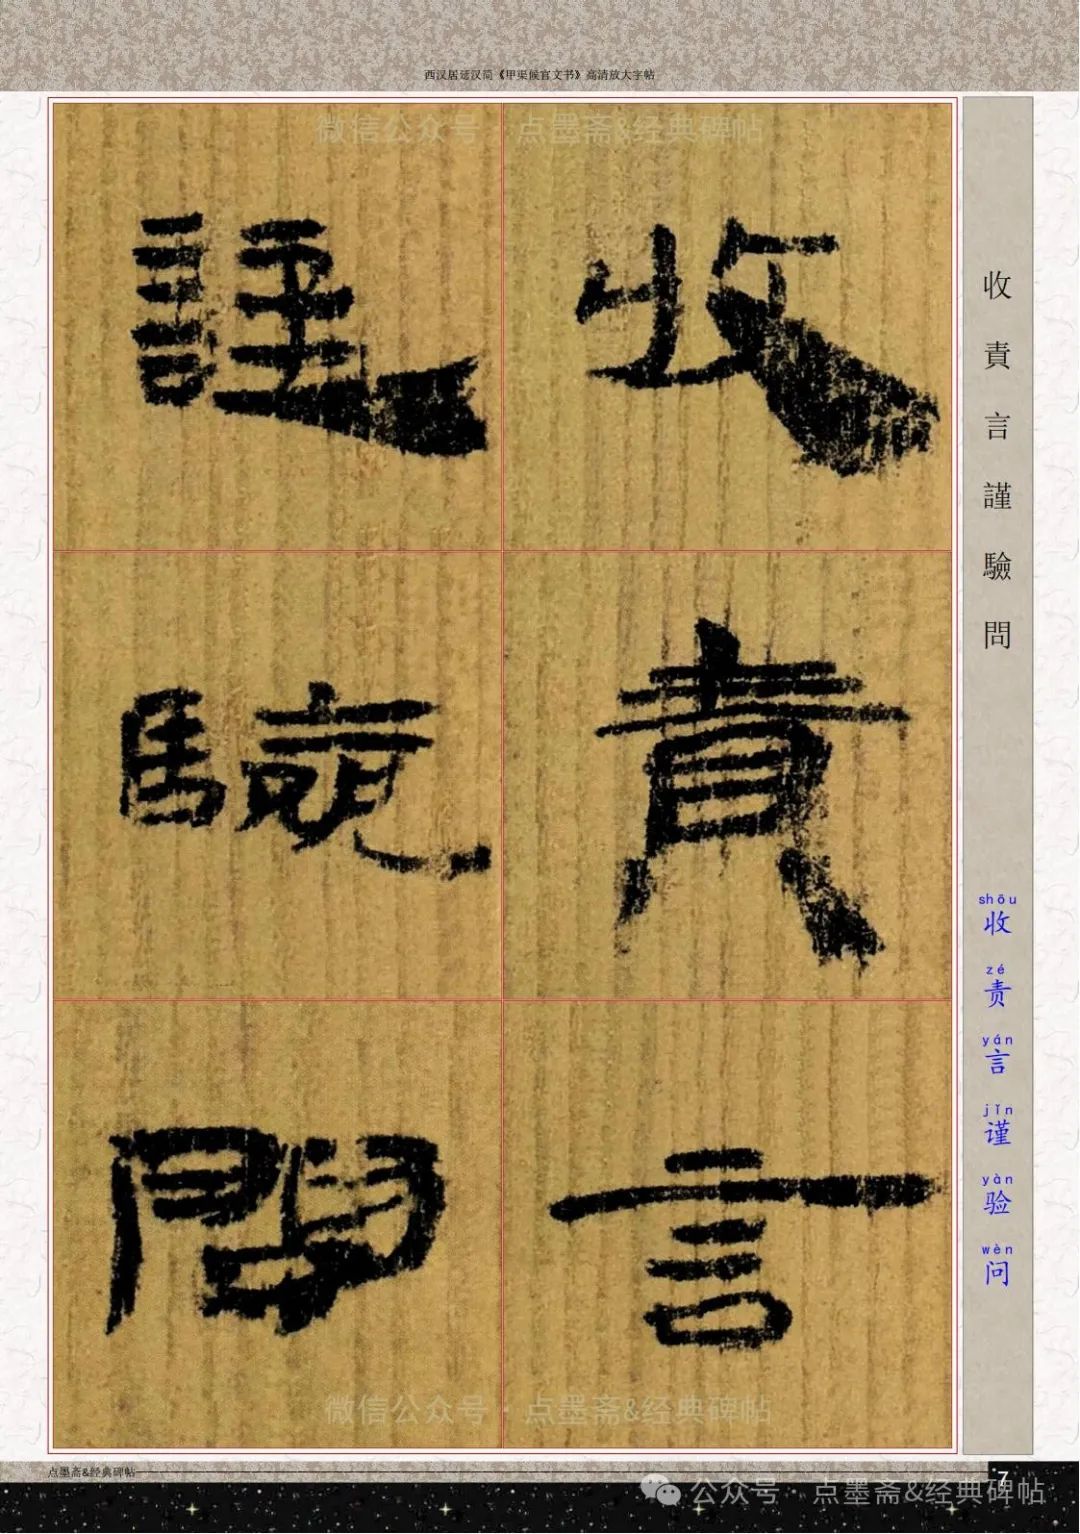 西汉居延汉简《甲渠候官文书》高清放大字帖
微信公众号·点墨斋&经典碑帖
收責言
謹驗問
收責言謹驗問
shōu
收
zé
责
yán
言
jǐn
谨
yàn
验
wèn
问
微信公众号·点墨斋&经典碑帖
点墨斋&经典碑帖
7
公众号·点墨斋&经典碑帖